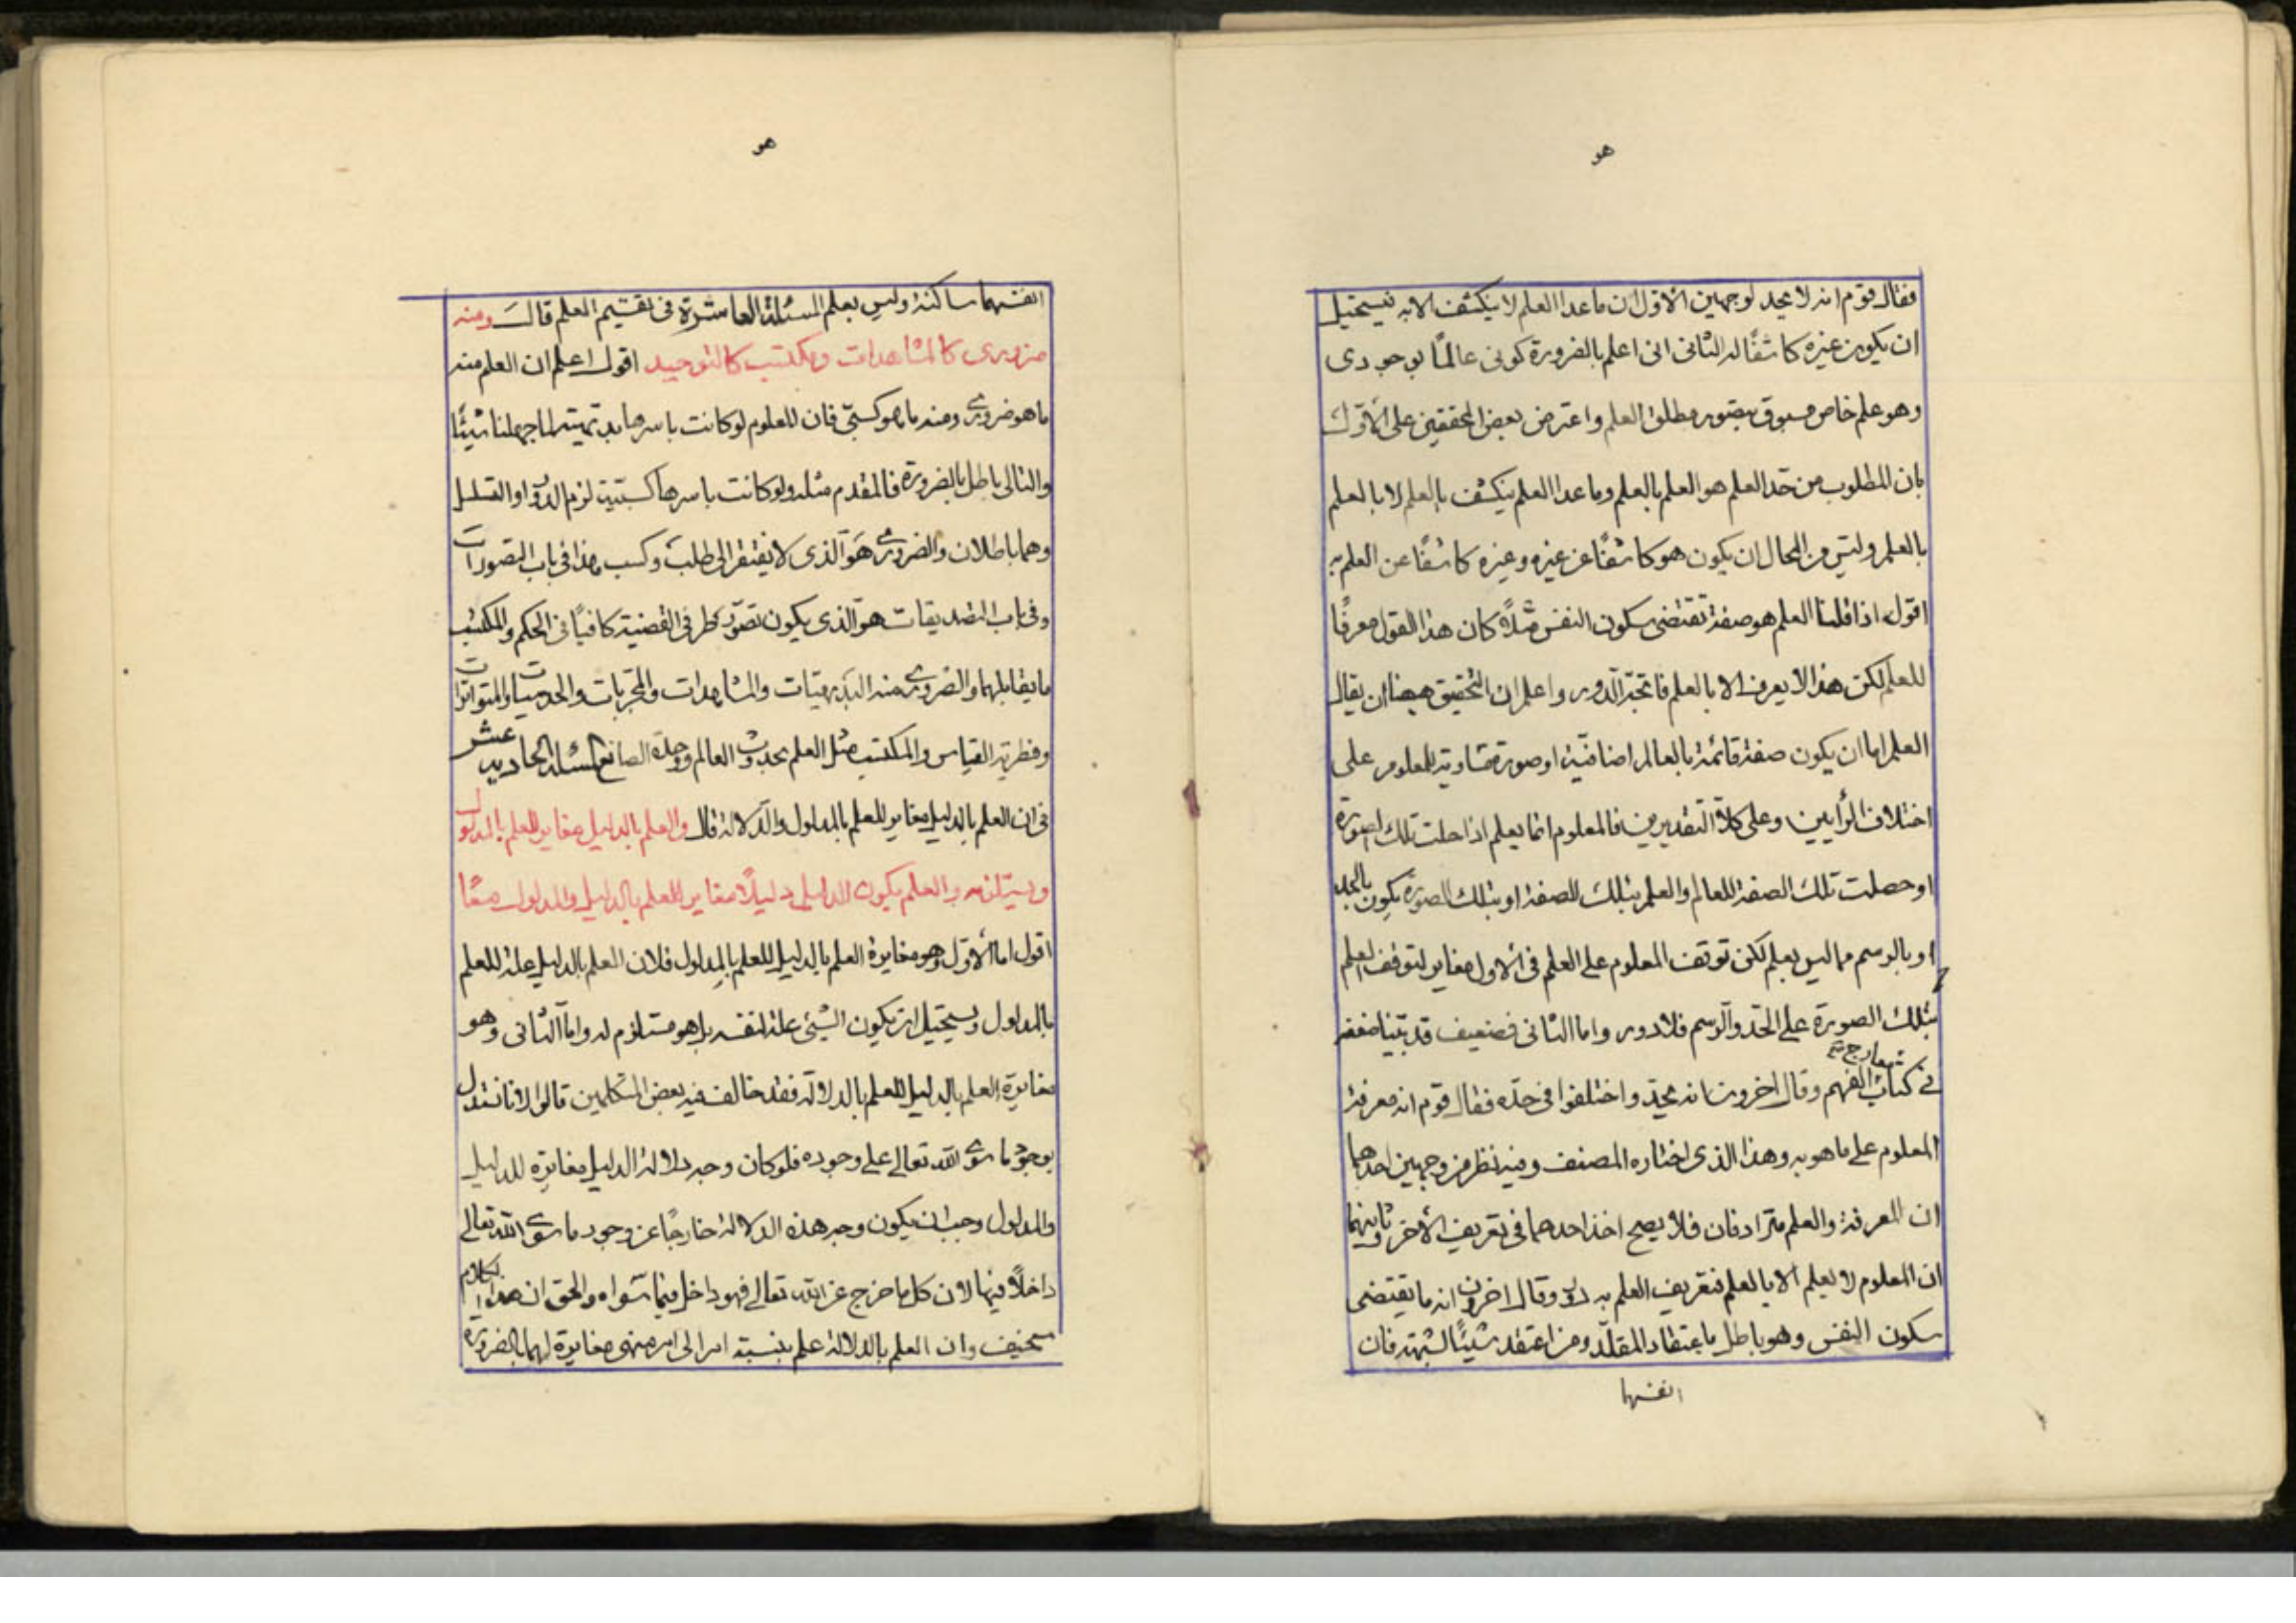 هو
فقال قوم انه لا يحد لوجهين الاول ان ماعدا العلم لا ينكشف الا به فيستحيل
ان يكون غيره كاشفًا له الثانى انى اعلم بالضرورة كونى عالمًا بوجودى
وهو علم خاص مسبوق بتصور مطلق العلم واعترض بعض المحققين على الأوّل
بان المطلوب من حدّ العلم هو العلم بالعلم وماعدا العلم ينكشف بالعلم لا بالعلم
بالعلم وليس من المحال ان يكون هو كاشفًا عن غيره وغيره كاشفًا عن العلم به
اقول اذا قلنا العلم هو صفة تقتضى سكون النفس مثلاً كان هذا القول معرفًا
للعلم لكن هذا لا يعرف الا بالعلم فاتجه الدور واعلم ان التحقيق ههنا ان يقال
العلم اما ان يكون صفة قائمة بالعالم اضافيّة او صورة مساوية للمعلوم على
اختلاف الرأيين وعلى كلا التقديرين فالمعلوم انما يعلم اذا حلت تلك الصورة
او حصلت تلك الصفة للعالم والعلم بتلك الصفة او بتلك الصورة يكون بالحد
او بالرسم مما ليس بعلم لكن توقف المعلوم على العلم فى الاول مغاير لتوقف العلم
بتلك الصورة على الحدّ والرسم فلا دور واما الثانى فضعيف قد بيّنا ضعفه
فى كتاب معارج الفهم وقال اخرون انه يحدّ واختلفوا فى حدّه فقال قوم انه معرفة
المعلوم على ما هو به وهذا الذى اختاره المصنف وفيه نظر من وجهين احدهما
ان المعرفة والعلم مترادفان فلا يصح اخذ احدهما فى تعريف الأخر وثانيهما
ان المعلوم لا يعلم الا بالعلم فتعريف العلم به دور وقال اخرون انه ما يقتضى
سكون النفس وهو باطل باعتقاد المقلّد ومن اعتقد شيئًا لشبهة فان
انفسهما
هو
انفسهما ساكنة وليس بعلم المسئلة العاشرة فى تقسيم العلم قال ومنه
ضرورى كالمشاهدات ومكتسب كالتوحيد اقول اعلم ان العلم منه
ما هو ضرورى ومنه ما هو كسبىّ فان العلوم لو كانت باسرها بديهيّة لما جهلنا شيئًا
والتالى باطل بالضرورة فالمقدم مثله ولو كانت باسرها كسبيّة لزم الدور او التسلسل
وهما باطلان والضرورى هو الذى لا يفتقر الى طلب وكسب هذا فى باب التصورات
وفى باب التصديقات هو الذى يكون تصوّر طرفى القضية كافيًا فى الحكم والمكتسب
ما يقابلهما والضرورى منه البديهيّات والمشاهدات والمجربات والحدسيات والمتواترات
وفطرية القياس والمكتسب مثل العلم بحدوث العالم ووحدة الصانع المسئلة الحادية عشر
فى ان العلم بالدليل مغاير للعلم بالمدلول والدلالة قال والعلم بالدليل مغاير للعلم بالمدلول
ويستلزمه والعلم بكون الدليل دليلاً مغاير للعلم بالدليل والمدلول معًا
اقول اما الأوّل وهو مغايرة العلم بالدليل للعلم بالمدلول فلان العلم بالدليل علة للعلم
بالمدلول ويستحيل ان يكون الشئ علة لنفسه بل هو مستلزم له واما الثانى وهو
مغايرة العلم بالدليل للعلم بالدلالة فقد خالف فيه بعض المتكلمين قالوا لانا نستدل
بوجود ما سوى الله تعالى على وجوده فلو كان وجه دلالة الدليل مغايرة للدليل
والمدلول وجب ان يكون وجه هذه الدلالة خارجًا عن وجود ما سوى الله تعالى
داخلاً فيها لان كل ما خرج عن الله تعالى فهو داخل فيما سواه والحق ان هذا الكلام
سخيف وان العلم بالدلالة علم بنسبة امر الى امر فهى مغايرة لهما بالضرورة